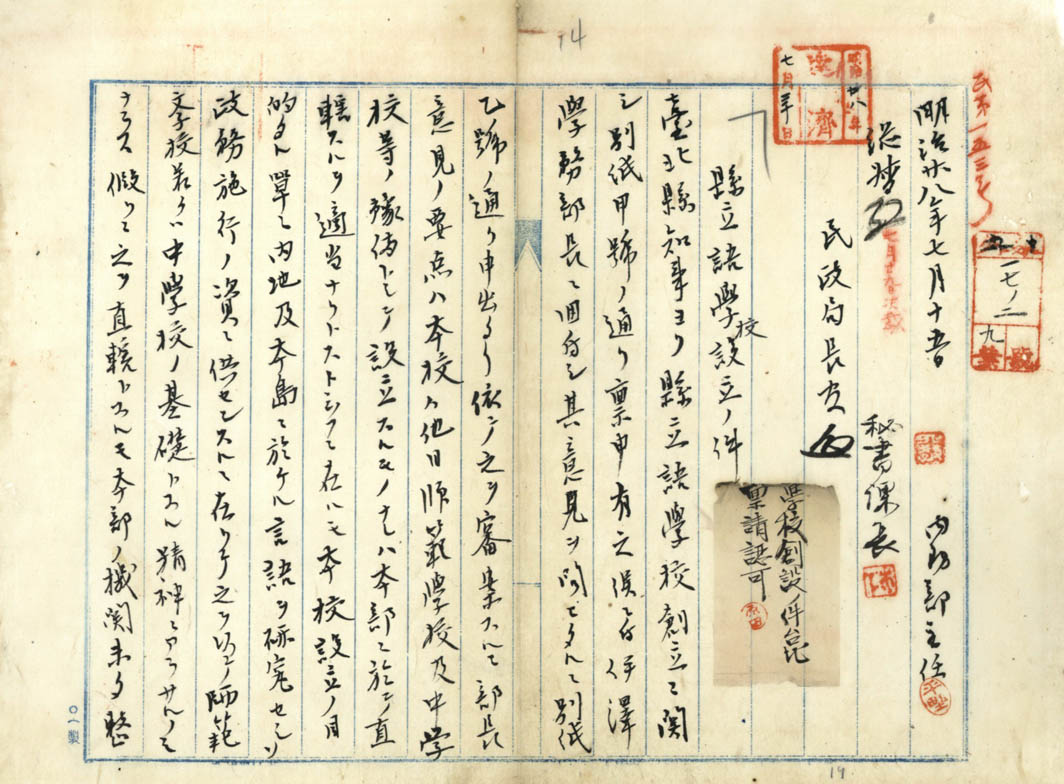 民第一五三号
明治廿八年七月十五日
内務部主任
秘書課長
総督
七月廿九日決裁
民政局長
明治廿八年
七月三十日
決濟
一七ノ二
九
學校創設ノ件台北
稟請認可
縣立語學校設立ノ件
臺北縣知事ヨリ縣立語學校創立ニ関
シ別紙甲號ノ通リ稟申有之候ニ付伊澤
學務部長ニ回付シ其意見ヲ問ヒタルニ別紙
乙號ノ通リ申出タリ依テ之ヲ審案スルニ部長
意見ノ要点ハ本校ハ他日師範學校及中學
校等ノ豫備トシテ設立スルモノナレハ本部ニ於テ直
轄スルヲ適当ナリトストシフニ在ルモ本校設立ノ目
的タル單ニ内地及本島ニ於ケル言語ヲ研究セシメ
政務施行ノ資ニ供セントスルニ在リテ之ヲ以テ師範
學校若クハ中學校ノ基礎トスル精神ニアラサルノミ
ナラス假リニ之ヲ直轄トスルモ本部ノ機関未タ整